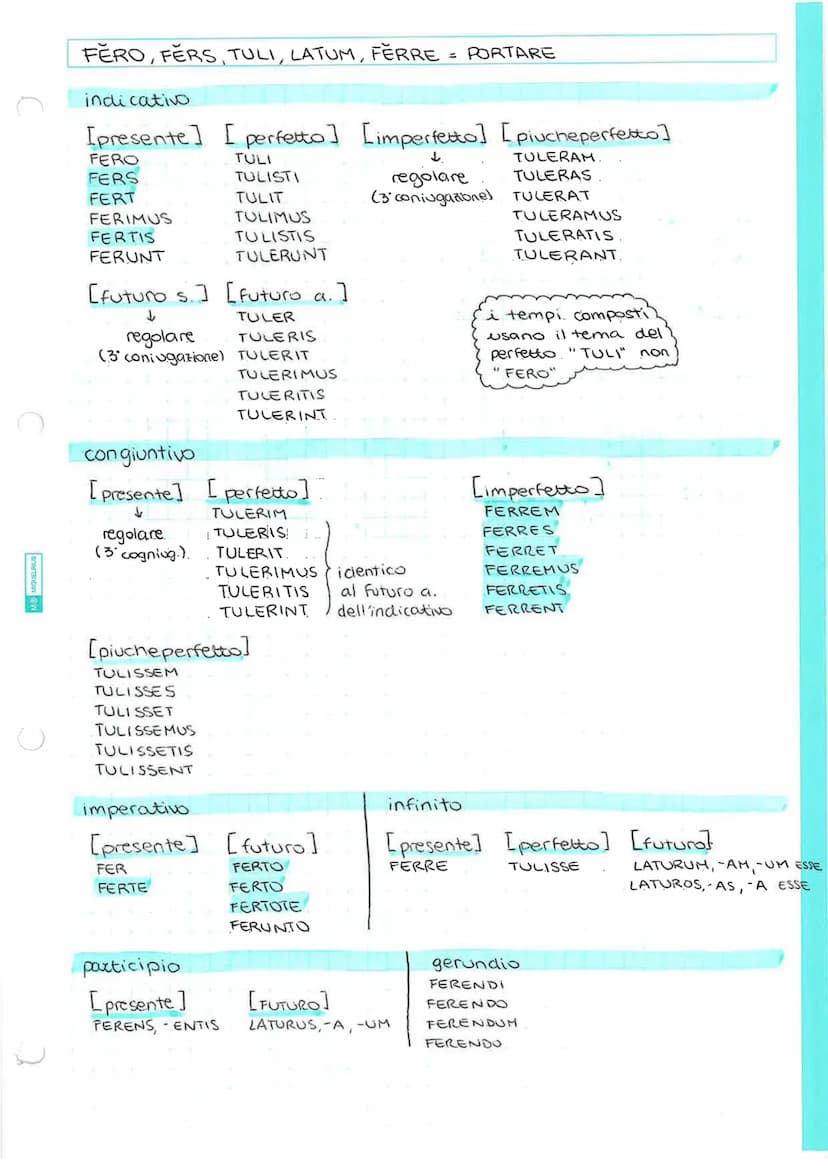 FĔRO, FĔRS, TULI, LATUM, FĔRRE = PORTARE
indicativo
[presente] [perfetto] [imperfetto] [piucheperfetto]
FERO TULI ↓ TULERAM
FERS TULISTI regolare TULERAS
FERT TULIT (3ª coniugazione) TULERAT
FERIMUS TULIMUS TULERAMUS
FERTIS TULISTIS TULERATIS
FERUNT TULERUNT TULERANT
[futuro s.] [futuro a.]
↓ TULER
regolare TULERIS
(3ª coniugazione) TULERIT
TULERIMUS
TULERITIS
TULERINT
i tempi composti
usano il tema del
perfetto "TULI" non
"FERO"
congiuntivo
[presente] [perfetto] [imperfetto]
↓ TULERIM FERREM
regolare TULERIS FERRES
(3ª cogniug.) TULERIT FERRET
TULERIMUS identico FERREMUS
TULERITIS al futuro a. FERRETIS
TULERINT dell'indicativo FERRENT
[piucheperfetto]
TULISSEM
TULISSES
TULISSET
TULISSEMUS
TULISSETIS
TULISSENT
imperativo
[presente] [futuro]
FER FERTO
FERTE FERTO
FERTOTE
FERUNTO
infinito
[presente] [perfetto] [futuro]
FERRE TULISSE LATURUM, -AM, -UM ESSE
LATUROS, -AS, -A ESSE
participio
[presente] [FUTURO]
FERENS, -ENTIS LATURUS, -A, -UM
gerundio
FERENDI
FERENDO
FERENDUM
FERENDO
MIQUELRIUS